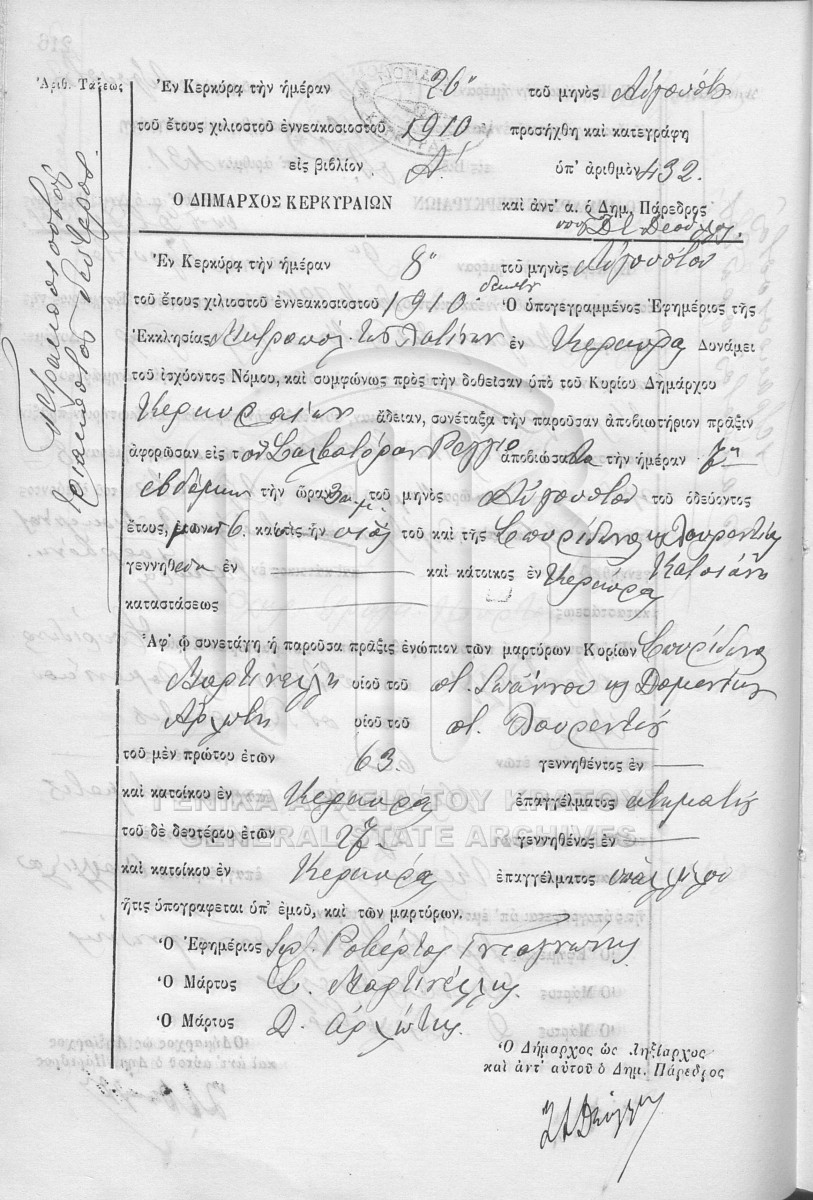 Ἀριθ. Τάξεως
Τετρακοσιοστὸς
τριακοστὸς δεύτερος.
Ἐν Κερκύρᾳ τὴν ἡμέραν 26 τοῦ μηνὸς Αὐγούστου
τοῦ ἔτους χιλιοστοῦ ἐννεακοσιοστοῦ 1910 προσήχθη καὶ κατεγράφη
εἰς βιβλίον Α' ὑπ' ἀριθμὸν 432.
Ο ΔΗΜΑΡΧΟΣ ΚΕΡΚΥΡΑΙΩΝ καὶ ἀντ' α. ὁ Δημ. Πάρεδρος
Ἐν Κερκύρᾳ τὴν ἡμέραν 8 τοῦ μηνὸς Αὐγούστου
τοῦ ἔτους χιλιοστοῦ ἐννεακοσιοστοῦ 1910 δεκάτου Ὁ ὑπογεγραμμένος Ἐφημέριος τῆς
Ἐκκλησίας Μητροπόλ. τῶν Λατίνων ἐν Κερκύρᾳ Δυνάμει
τοῦ ἰσχύοντος Νόμου, καὶ συμφώνως πρὸς τὴν δοθεῖσαν ὑπὸ τοῦ Κυρίου Δημάρχου
Κερκυραίων ἄδειαν, συνέταξα τὴν παροῦσαν ἀποβιωτήριον πρᾶξιν
ἀφορῶσαν εἰς τὸν Σαλβατόραν Ρέγγιο ἀποβιώσαντα τὴν ἡμέραν 7η
ἑβδόμην τὴν ὥραν 3 π.μ. τοῦ μηνὸς Αὐγούστου τοῦ ὁδεύοντος
ἔτους, μηνῶν 6. υἱὸς τοῦ καὶ τῆς Σπυρίδωνος κ Λουρεντίας
γεννηθέντα ἐν — καὶ κάτοικος ἐν Κερκύρᾳ
καταστάσεως
Ἀφ' ᾧ συνετάγη ἡ παροῦσα πρᾶξις ἐνώπιον τῶν μαρτύρων Κυρίων Σπυρίδωνος
Μαρτινέλλη υἱοῦ τοῦ π. Ἰωάννου κ Δομενίκου
υἱοῦ τοῦ π. Λουρεντίου
τοῦ μὲν πρώτου ἐτῶν 63. γεννηθέντος ἐν —
καὶ κατοίκου ἐν Κερκύρᾳ ἐπαγγέλματος κτηματίας
τοῦ δὲ δευτέρου ἐτῶν 27 γεννηθένος ἐν —
καὶ κατοίκου ἐν Κερκύρᾳ ἐπαγγέλματος ὑπαλλήλου
ἥτις ὑπογράφεται ὑπ' ἐμοῦ, καὶ τῶν μαρτύρων.
Ὁ Ἐφημέριος Ροβέρτος
Ὁ Μάρτυς Σ. Μαρτινέλλης
Ὁ Μάρτυς Δ.
Ὁ Δήμαρχος ὡς Ληξίαρχος
καὶ ἀντ' αὐτοῦ ὁ Δημ. Πάρεδρος
ΓΕΝΙΚΑ ΑΡΧΕΙΑ ΤΟΥ ΚΡΑΤΟΥΣ
GENERAL STATE ARCHIVES